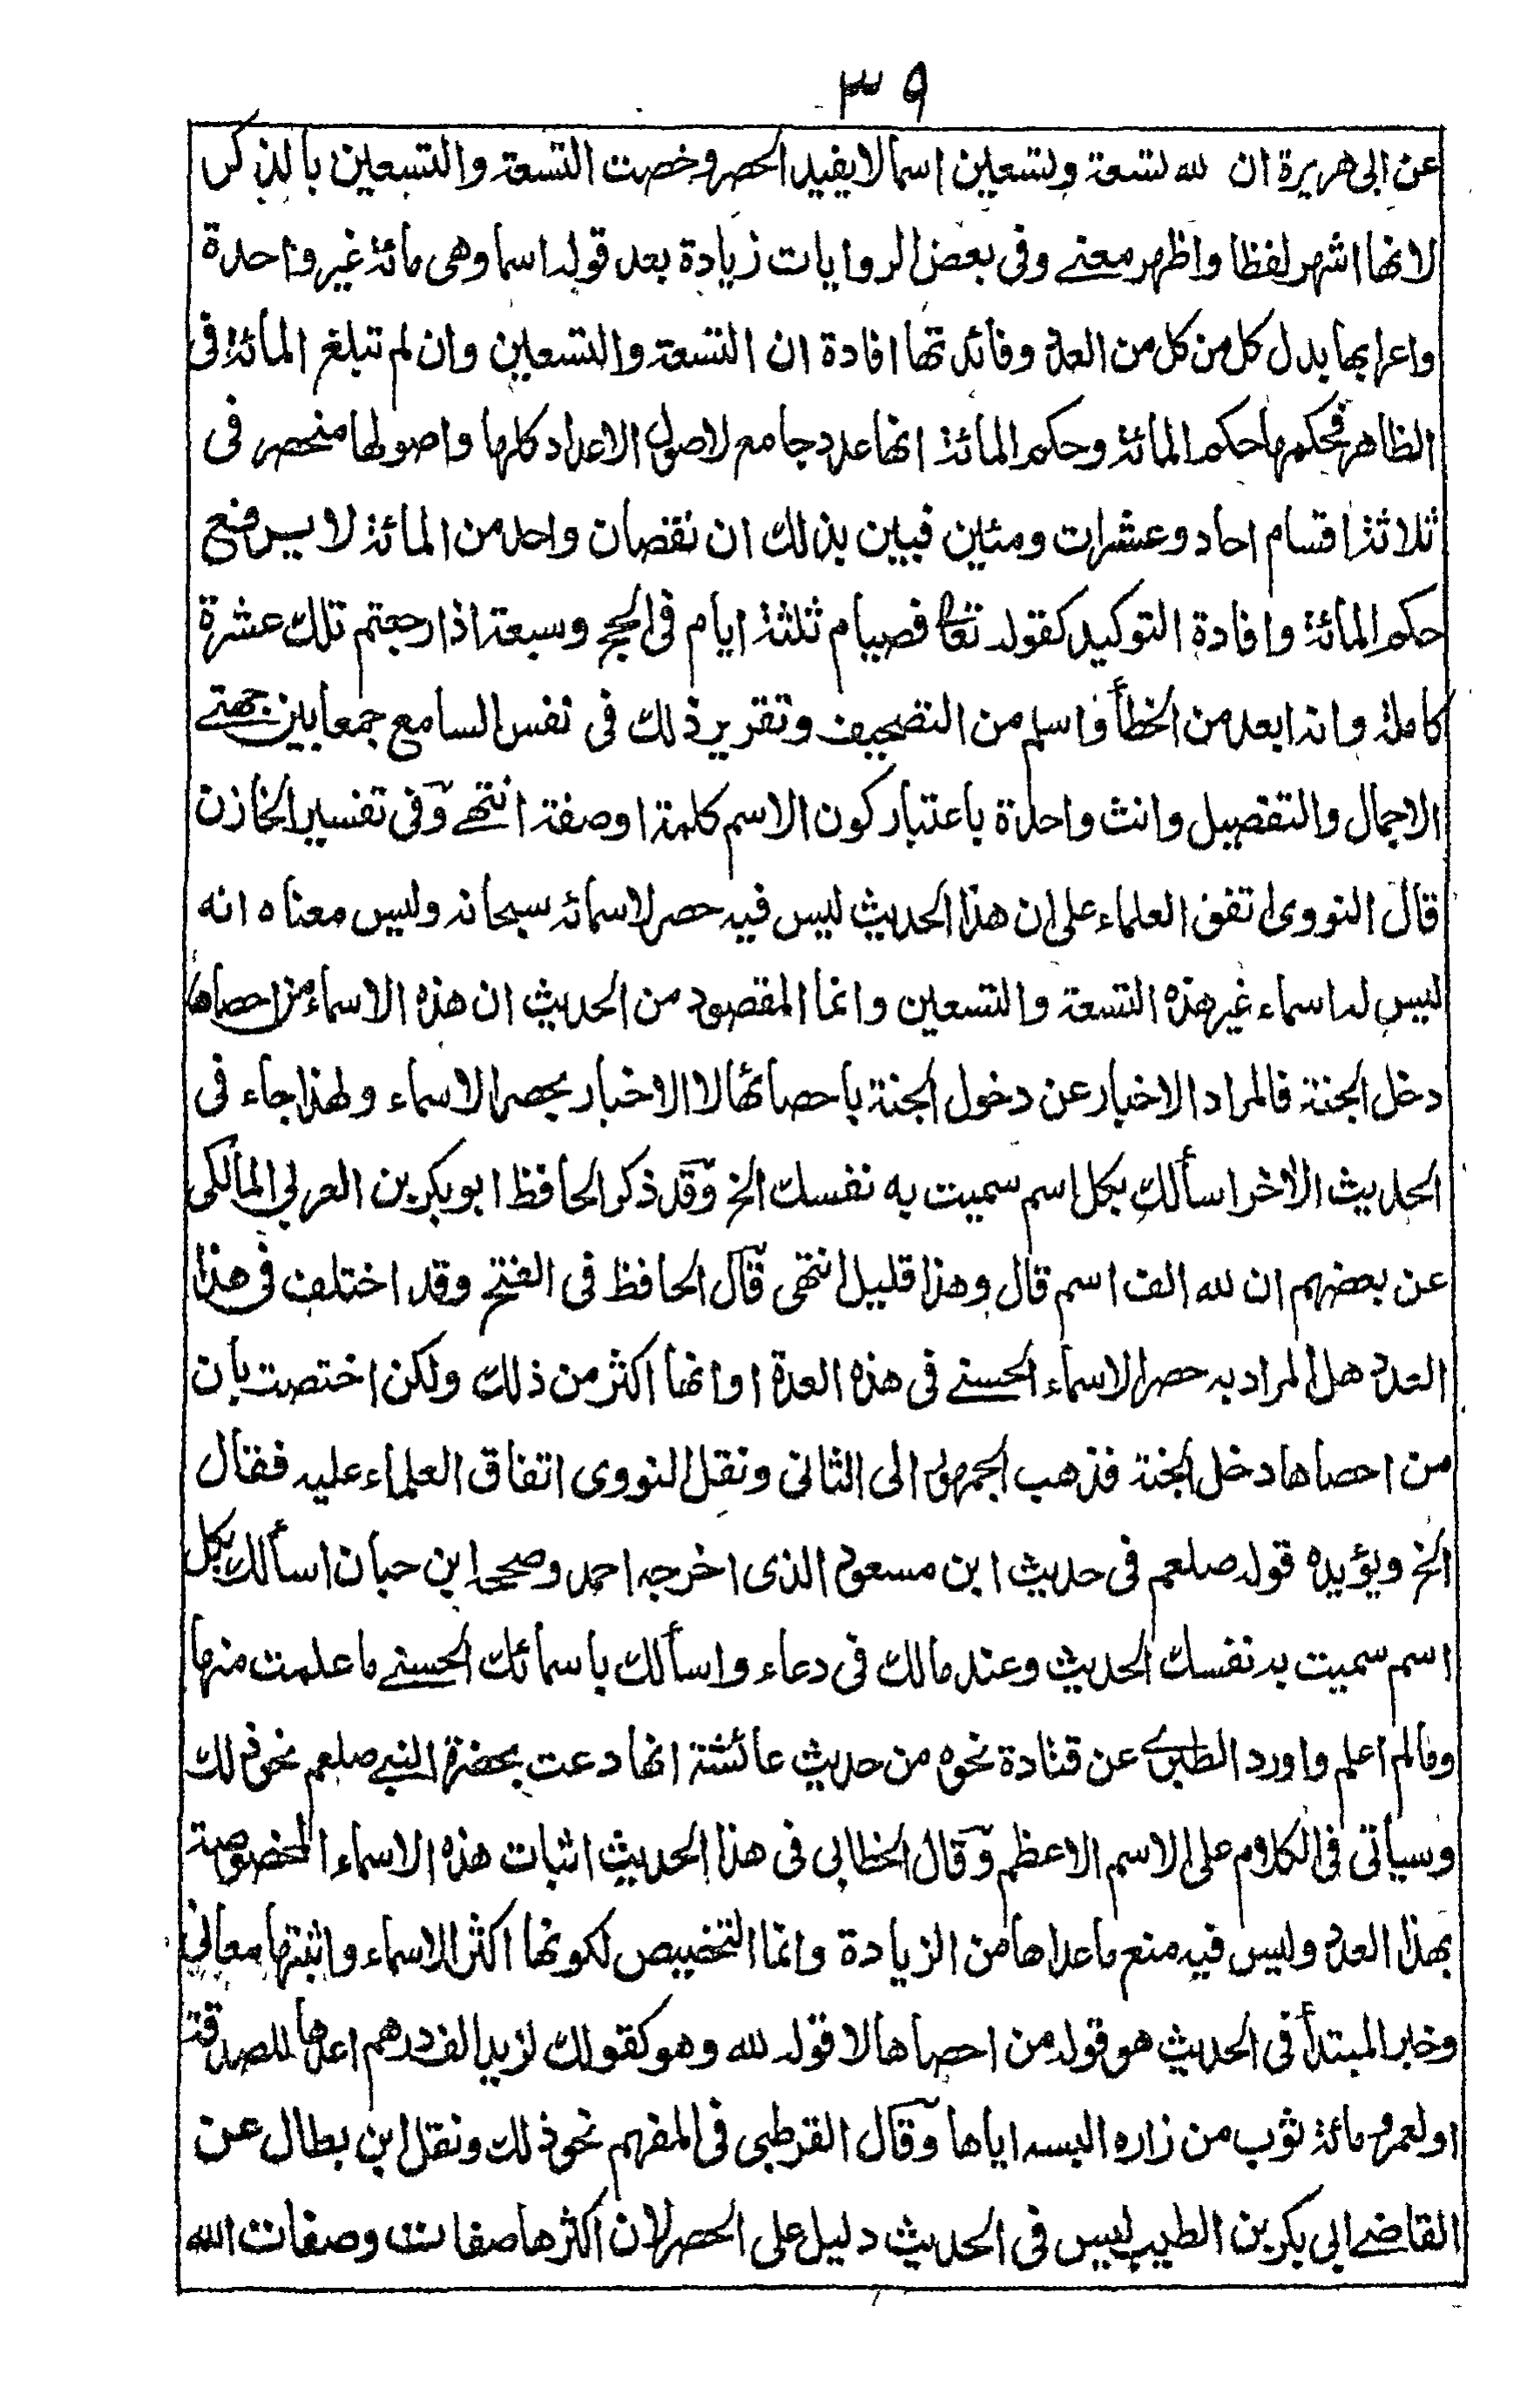 ٣٩
عن ابى هريرة ان لله تسعة وتسعين اسما لا يفيد الحصر وخصت التسعة والتسعين بالذكر
لانها اشهر لفظا واظهر معنے وفى بعض الروايات زيادة بعد قوله اسما وهى مائة غير واحدة
واعرابها بدل كل من كل من العدة وفائدتها افادة ان التسعة والتسعين وان لم تبلغ المائة فى
الظاهر فحكمها حكم المائة وحكم المائة انها عدد جامع لاصول الاعداد كلها واصولها منحصر فى
ثلاثة اقسام احاد وعشرات ومئين فبين بذلك ان نقصان واحد من المائة لا يرفع
حكم المائة وافادة التوكيد كقوله تعا فصيام ثلثة ايام فى الحج وسبعة اذا رجعتم تلك عشرة
كاملة وانه ابعد من الخطأ واسلم من التصحيف وتقرير ذلك فى نفس السامع جمعا بين جهتے
الاجمال والتفصيل وانث واحدة باعتبار كون الاسم كلمة او صفة انتهے وفى تفسير الخازن
قال النووى اتفق العلماء على ان هذا الحديث ليس فيه حصر لاسمائه سبحانه وليس معناه انه
ليس له اسماء غير هذه التسعة والتسعين وانما المقصود من الحديث ان هذه الاسماء من احصاها
دخل الجنة فالمراد الاخبار عن دخول الجنة باحصائها لا الاخبار بحصر الاسماء ولهذا جاء فى
الحديث الاخر اسألك بكل اسم سميت به نفسك الخ وقد ذكر الحافظ ابو بكر بن العربي المالكى
عن بعضهم ان لله الف اسم قال وهذا قليل انتهى قال الحافظ فى الفتح وقد اختلف فى هذا
العدد هل المراد به حصر الاسماء الحسنے فى هذه العدة او انها اكثر من ذلك ولكن اختصت بان
من احصاها دخل الجنة فذهب الجمهور الى الثانى ونقل النووى اتفاق العلماء عليه فقال
الخ ويؤيده قوله صلعم فى حديث ابن مسعود الذى اخرجه احمد وصححه ابن حبان اسألك بكل
اسم سميت به نفسك الحديث وعند مالك فى دعاء واسألك باسمائك الحسنے ما علمت منها
وما لم اعلم واورد الطبرى عن قتادة نحوه من حديث عائشة انها دعت بحضرة النبے صلعم نحو ذلك
وسياتى فى الكلام على الاسم الاعظم وقال الخطابى فى هذا الحديث اثبات هذه الاسماء المخصوصة
بهذا العدد وليس فيه منع ما عداها من الزيادة وانما التخصيص لكونها اكثر الاسماء واثبتها معانى
وخبر المبتدأ فى الحديث هو قوله من احصاها لا قوله لله وهو كقولك لزيد الف درهم اعدها للصدقة
او لعمرو مائة ثوب من زاره البسه اياها وقال القرطبى فى المفهم نحو ذلك ونقل ابن بطال عن
القاضے ابى بكر بن الطيب ليس فى الحديث دليل على الحصر لان اكثرها صفات وصفات الله